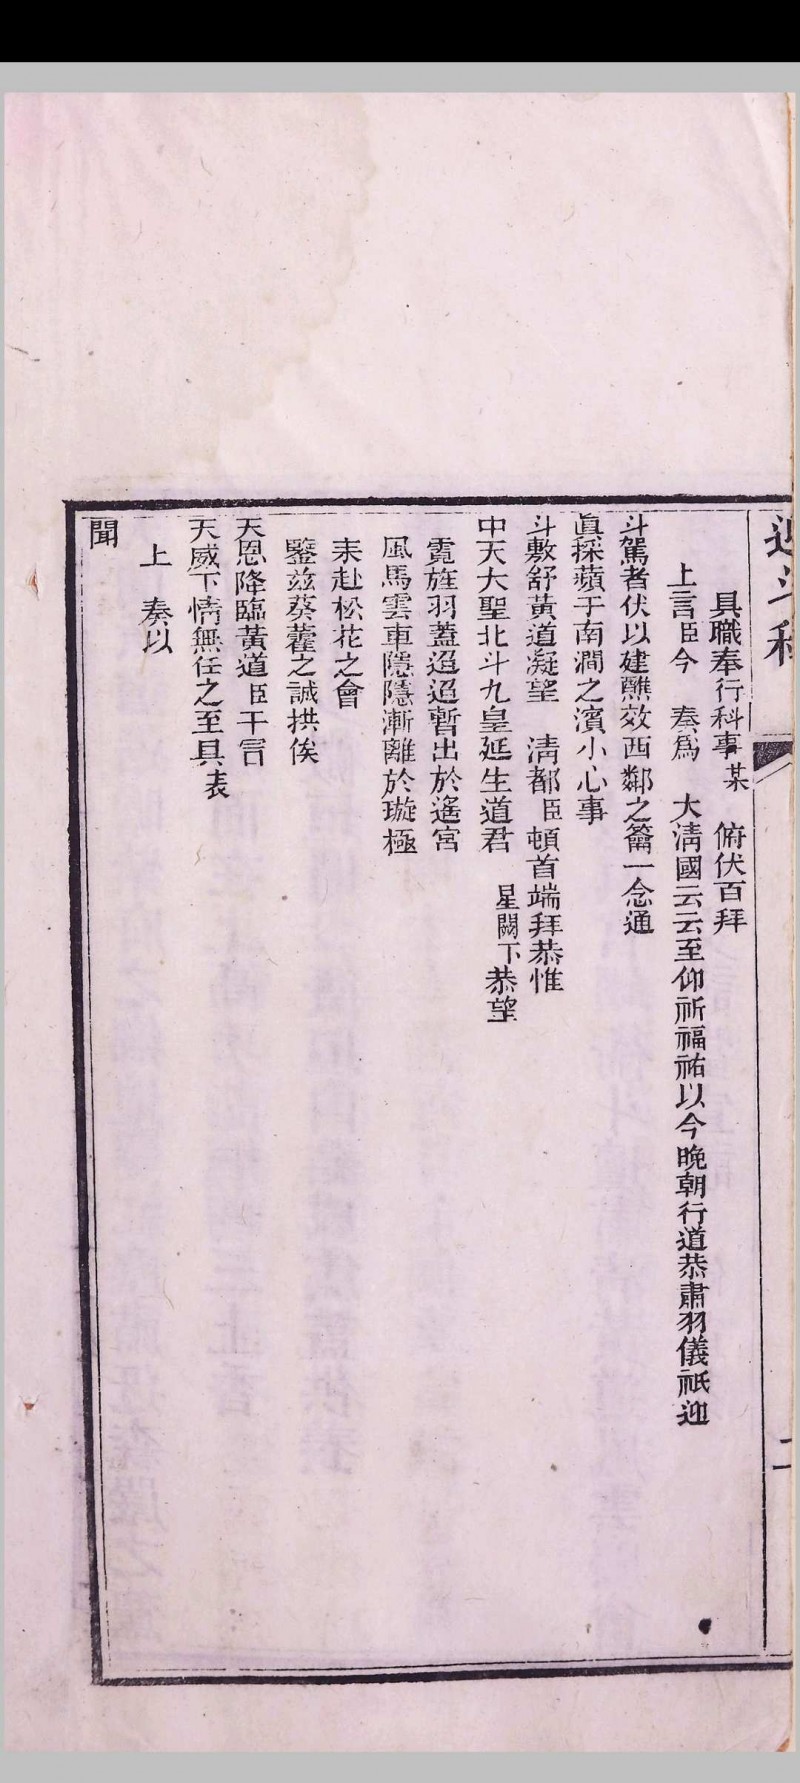 迎斗科
二
具職奉行科事某 俯伏百拜
上言臣今 奏為 大清國云云至仰祈福祐以今晚朝行道恭肅羽儀祇迎
斗駕者伏以建醮效西鄰之禴一念通
眞採蘋于南澗之濱小心事
斗敷舒黃道凝望 清都臣頓首端拜恭惟
中天大聖北斗九皇延生道君 星闕下恭望
霓旌羽蓋迢迢暫出於遙宮
風馬雲車隱隱漸離於璇極
來赴松花之會
鑒茲葵藿之誠拱俟
天恩降臨黃道臣干冒
天威下情無任之至具表
上 奏以
聞